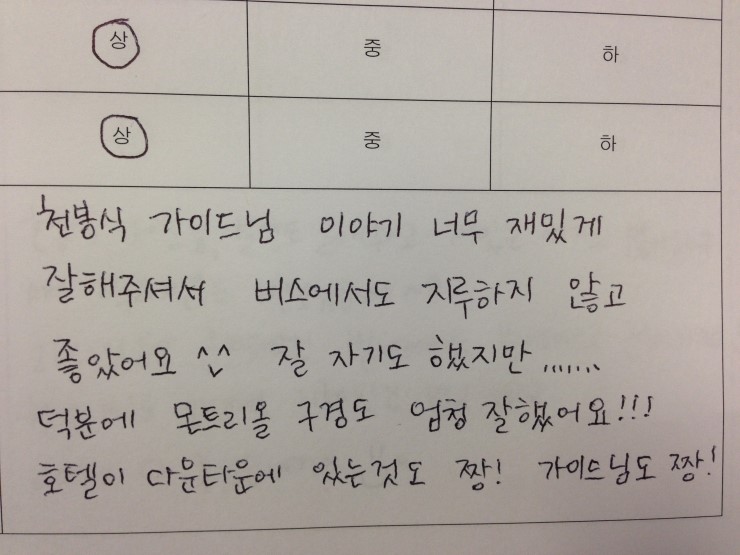 상 중 하
상 중 하
천봉식 가이드님 이야기 너무 재밌게
잘해주셔서 버스에서도 지루하지 않고
좋았어요 ^^ 잘 자기도 했지만.......
덕분에 몬트리올 구경도 엄청 잘했어요!!!
호텔이 다운타운에 있는것도 짱! 가이드님도 짱!